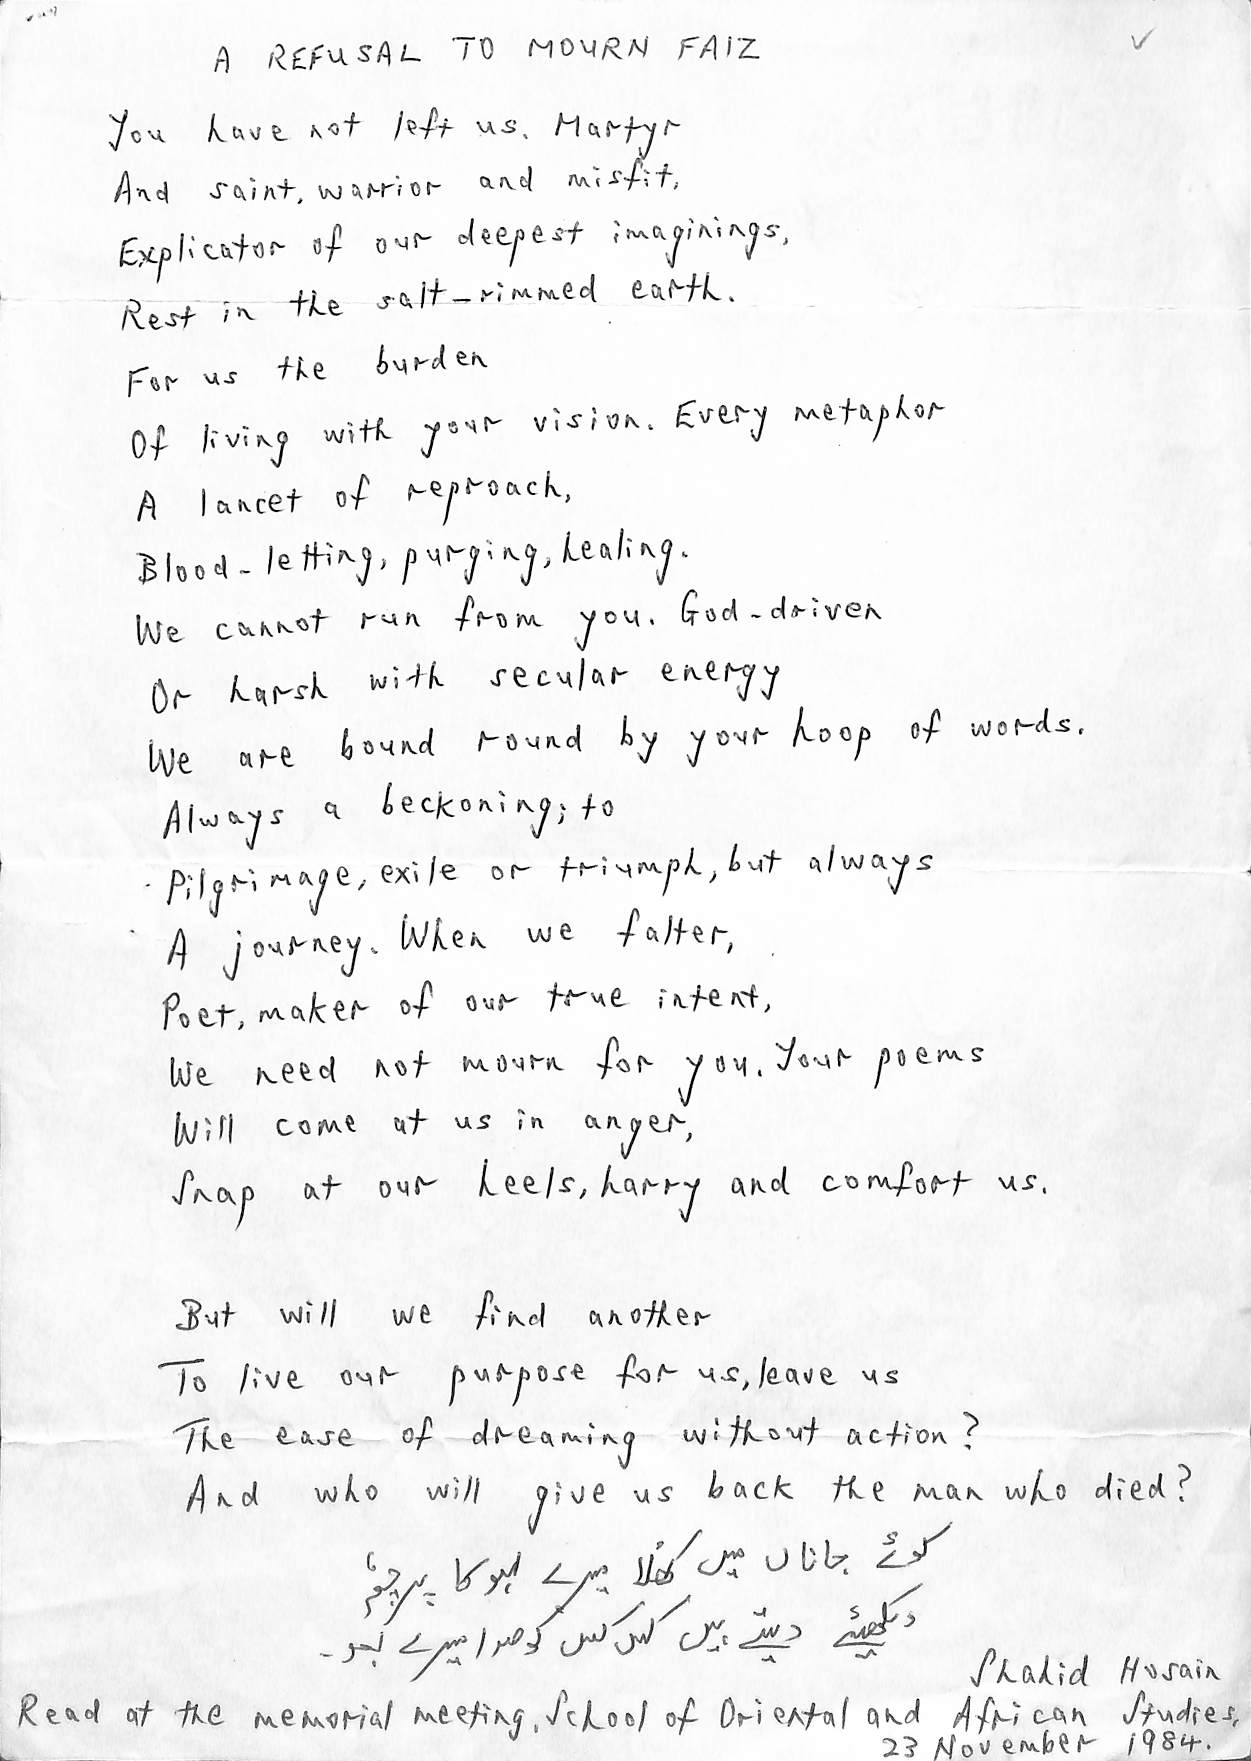 A REFUSAL TO MOURN FAIZ
You have not left us. Martyr
And saint, warrior and misfit,
Explicator of our deepest imaginings,
Rest in the salt-rimmed earth.
For us the burden
Of living with your vision. Every metaphor
A lancet of reproach,
Blood-letting, purging, healing.
We cannot run from you. God-driven
Or harsh with secular energy
We are bound round by your hoop of words.
Always a beckoning; to
Pilgrimage, exile or triumph, but always
A journey. When we falter,
Poet, maker of our true intent,
We need not mourn for you. Your poems
Will come at us in anger,
Snap at our heels, harry and comfort us.
But will we find another
To live our purpose for us, leave us
The ease of dreaming without action?
And who will give us back the man who died?
کوئے جاناں میں کھُلا میرے لہو کا پرچم
دیکھئیے دیتے ہیں کس کس کو صدا میرے بعد۔
Shahid Husain
Read at the memorial meeting, School of Oriental and African Studies,
23 November 1984.